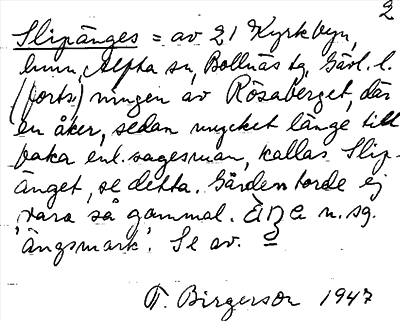 2
Slipänges = av 21 Kyrkbyn,
hmn, Alfta sn, Bollnäs tg, Gävl. l.
(forts.) ningen av Rösaberget, där
en åker, sedan mycket länge till
baka enl. sagesman, kallas Slip-
änget, se detta. Gården torde ej
vara så gammal. n. sg.
'ängsmark'. Se av. =
T. Birgerson 1947